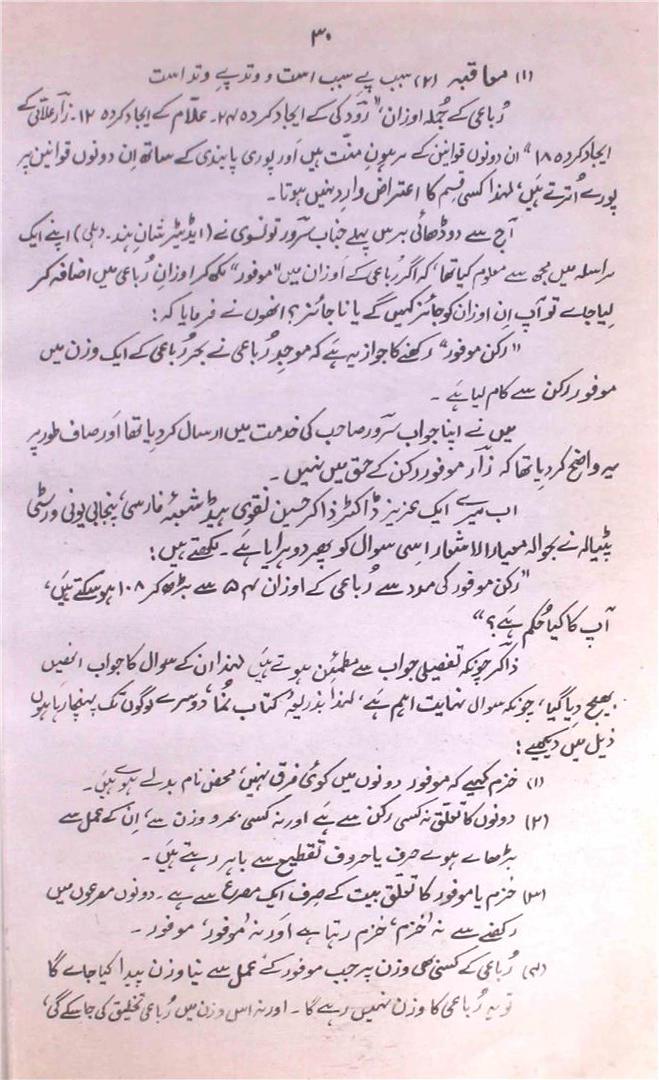 ۳۰
(۱) معاقبہ (۲) سبب پےِ سبب است و وتد پےِ وتد است
رُباعی کے جُملہ اوزان،" رَوَدکی کے ایجاد کردہ ۲۴۔ علاّم کے ایجاد کردہ ۱۲۔ زار علامی کے
ایجاد کردہ ۱۸" ان دونوں قوانین کے مرہونِ منّت ہیں اَور پوری پابندی کے ساتھ اِن دونوں قوانین پر
پورے اُترتے ہَیں، لہٰذا کسی قِسم کا اعتراض وارِد نہیں ہوتا۔
آج سے دو ڈھائی برس پہلے جناب سَرور تونسوی نے (ایڈیٹر شانِ ہند۔ دہلی) اپنے ایک
مراسلہ میں مجھ سے معلوم کیا تھا، کہ اگر رُباعی کے اَوزان میں "موفور" رکھ کر اوزانِ رُباعی میں اضافہ کر
لِیا جاے تو آپ اِن اوزان کو جائز کہیں گے یا نا جائز؟ انھوں نے فرمایا کہ:
"رکن موفور" رکھنے کا جواز یہ ہَے کہ موجدِ رُباعی نے بحرِ رُباعی کے ایک وزن میں
موفور رکن سے کام لیا ہَے۔
میں نے اپنا جواب سَرور صاحب کی خدمت میں ارسال کر دِیا تھا اَور صاف طور پر
یہ واضح کر دِیا تھا کہ زار موفور رکن کے حق میں نہیں۔
اب میرے ایک عزیز ڈاکٹر ذاکر حسین نقوی ہیڈ شعبۂ فارسی، پنجابی یونی ورسٹی
پٹیالہ نے بحوالہ معیار الاشعار اِسی سوال کو پھر دوہرایا ہَے۔ لکھتے ہیں:
"رکن موفور کی مدد سے رُباعی کے اوزان ۵۴ سے بڑھ کر ۱۰۸ ہو سکتے ہیں،
آپ کا کیا حُکم ہَے؟"
ذاکر چونکہ تفصیلی جواب سے مطمئن ہوتے ہَیں لہٰذا ان کے سوال کا جواب انھیں
بھیج دِیا گیا، چونکہ سوال نہایت اہم ہَے، لہٰذا بذریعۂ کتاب ہٰذا، دوسرے لوگوں تک پہنچا رہا ہوں
ذیل میں دیکھیے:
(۱) خزم کہیے کہ موفور دونوں میں کوئی فرق نہیں، محض نام بدلے ہوے ہیں۔
(۲) دونوں کا تعلّق نہ کسی رکن سے ہَے اور نہ کسی بحر و وزن سے، اِن کے عمل سے
بڑھاے ہوے حرف یا حروف تقطیع سے باہر رہتے ہَیں۔
(۳) خُزم یا موفور کا تعلّق بیت کے صِرف ایک مصرعہ سے ہے۔ دونوں مصرعوں میں
رکھنے سے نہ خُزم، خُزم رہتا ہے اَور نہ موفور، موفور۔
(۴) رُباعی کے کسی بھی وزن پر جب موفور کے عمل سے نیا وزن پیدا کیا جاے گا
تو یہ رُباعی کا وزن نہیں رہے گا۔ اور نہ اس وزن میں رُباعی تخلیق کی جا سکے گی،